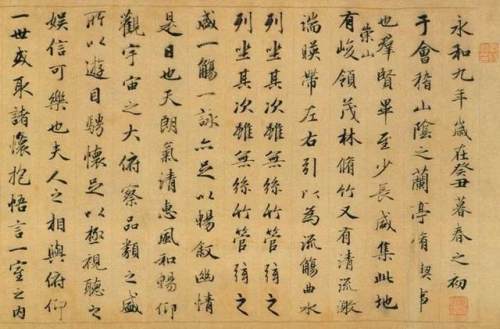 永和九年歲在癸丑暮春之初
于會稽山陰之蘭亭脩契事
也羣賢畢至少長咸集此地
崇山
有峻領茂林脩竹又有清流激
湍暎帶左右引以為流觴曲水
列坐其次雖無絲竹管弦之
列坐其次雖無絲竹管弦之
盛一觴一詠亦足以暢敘幽情
是日也天朗氣清惠風和暢仰
觀宇宙之大俯察品類之盛
所以遊目騁懷足以極視聽之
娛信可樂也夫人之相與俯仰
一世或取諸懷抱悟言一室之內